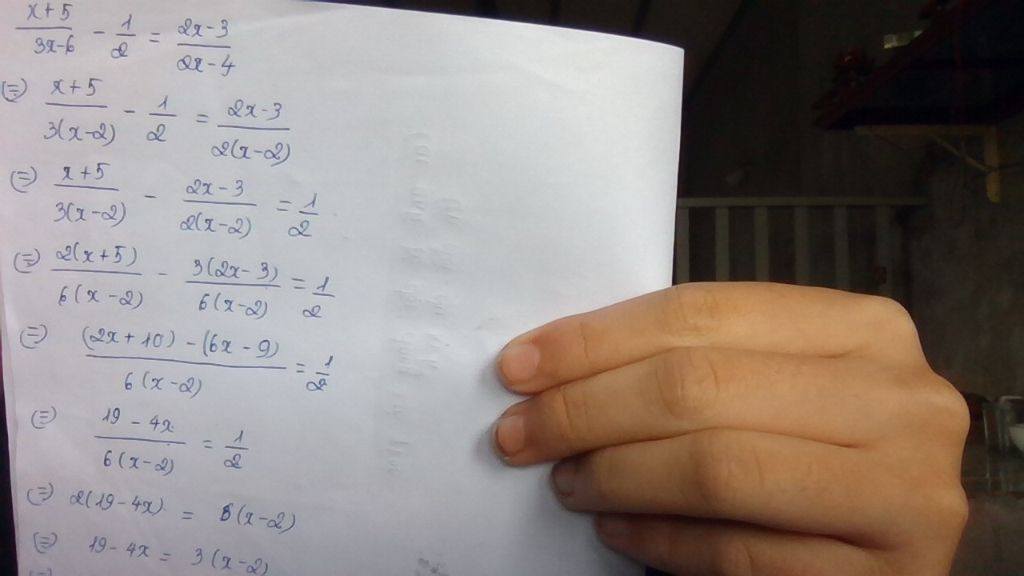 (x+5)/(3x-6) - 1/2 = (2x-3)/(2x-4)
(=) (x+5)/(3(x-2)) - 1/2 = (2x-3)/(2(x-2))
(=) (x+5)/(3(x-2)) - (2x-3)/(2(x-2)) = 1/2
(=) (2(x+5))/(6(x-2)) - (3(2x-3))/(6(x-2)) = 1/2
(=) ((2x+10) - (6x-9))/(6(x-2)) = 1/2
(=) (19-4x)/(6(x-2)) = 1/2
(=) 2(19-4x) = 6(x-2)
(=) 19-4x = 3(x-2)